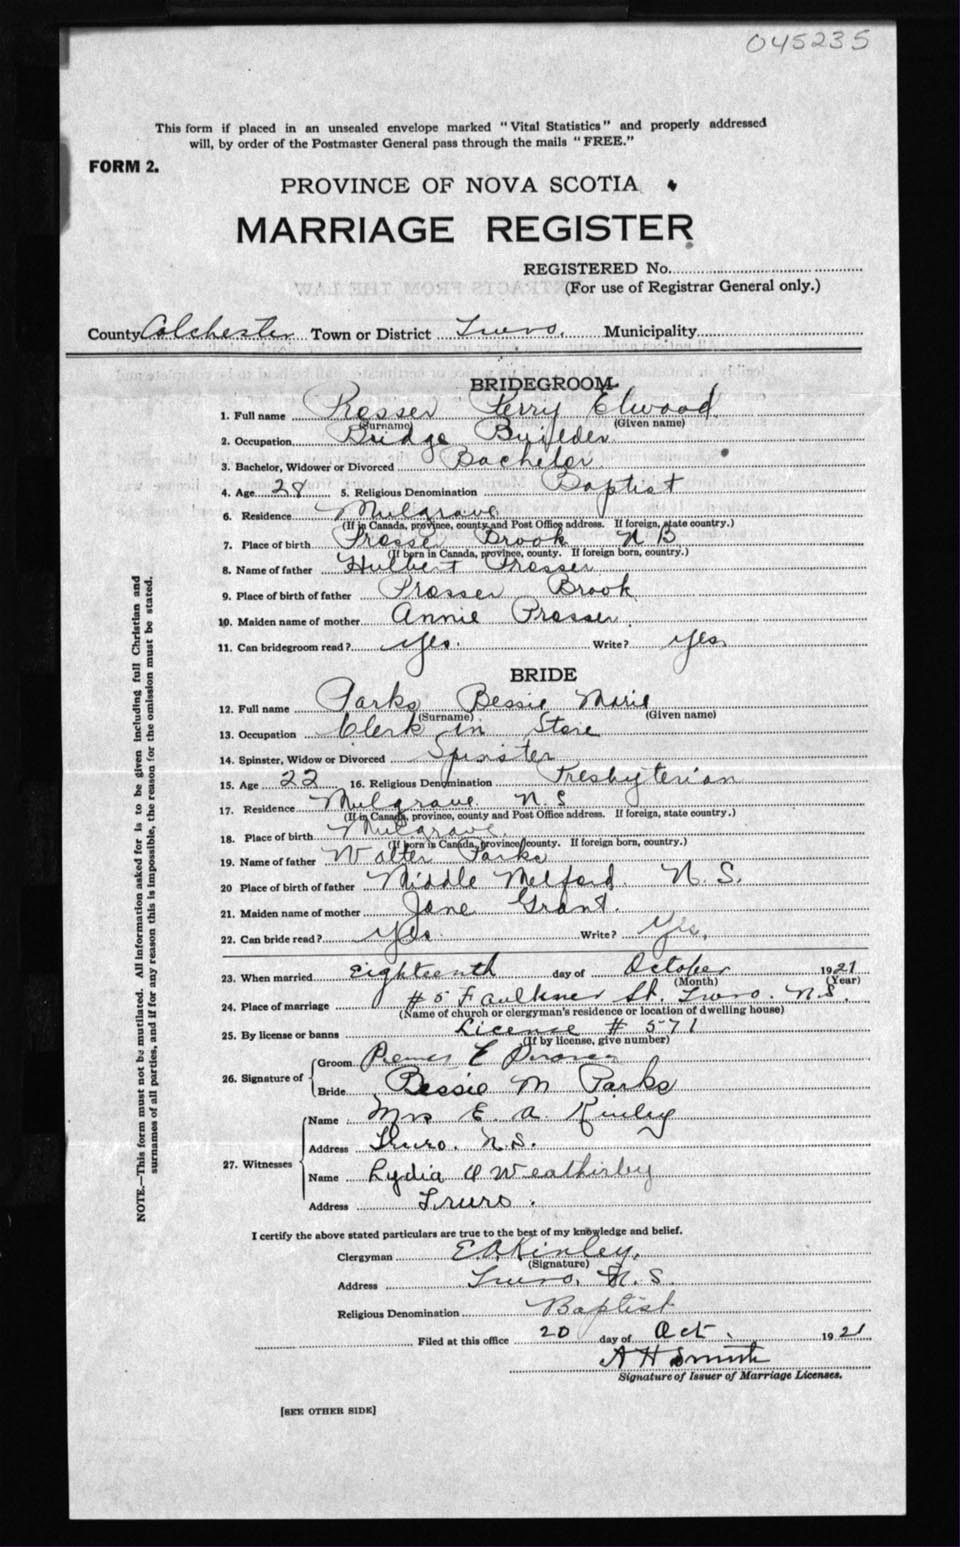 045235
This form if placed in an unsealed envelope marked "Vital Statistics" and properly addressed
will, by order of the Postmaster General pass through the mails "FREE."
FORM 2.
PROVINCE OF NOVA SCOTIA
MARRIAGE REGISTER
REGISTERED No.
(For use of Registrar General only.)
County Colchester Town or District Truro. Municipality
BRIDEGROOM
1. Full name Prosser Perry Elwood
(Surname) (Given name)
2. Occupation Bridge Builder
3. Bachelor, Widower or Divorced Bachelor
4. Age 28 5. Religious Denomination Baptist
6. Residence Mulgrave
(If in Canada, province, county and Post Office address. If foreign, state country.)
7. Place of birth Brook N B
(If born in Canada, province, county. If foreign born, country.)
8. Name of father Hulbert Prosser
9. Place of birth of father Prosser Brook
10. Maiden name of mother Annie Prosser
11. Can bridegroom read? Yes. Write? Yes
BRIDE
12. Full name Parks Bessie Marie
(Surname) (Given name)
13. Occupation Clerk in Store
14. Spinster, Widow or Divorced Spinster
15. Age 22 16. Religious Denomination Presbyterian
17. Residence Mulgrave N S
(If in Canada, province, county and Post Office address. If foreign, state country.)
18. Place of birth Mulgrave
(If born in Canada, province/county. If foreign born, country.)
19. Name of father Walter Parks
20 Place of birth of father Middle Melford. N. S.
21. Maiden name of mother Jane Grant.
22. Can bride read? Yes Write? Yes,
23. When married eighteenth day of October 1921
(Month) (Year)
24. Place of marriage # 5 Faulkner St. Truro. N.S.
(Name of church or clergyman's residence or location of dwelling house)
25. By license or banns License # 571
(If by license, give number)
26. Signature of
Groom E
Bride Bessie M Parks
27. Witnesses
Name Mrs E. A. Kinley
Address Truro. N.S.
Name Lydia Weatherby
Address Truro.
I certify the above stated particulars are true to the best of my knowledge and belief.
Clergyman E.A. Kinley.
(Signature)
Address Truro, N. S.
Religious Denomination Baptist
Filed at this office 20 day of Oct. 1921
A H Smith
Signature of Issuer of Marriage Licenses.
[SEE OTHER SIDE]
NOTE.—This form must not be mutilated. All information asked for is to be given including full Christian and
surnames of all parties, and if for any reason this is impossible, the reason for the omission must be stated.